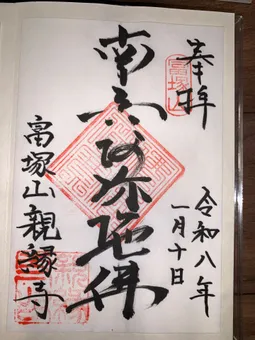 奉拝
富塚山
令和八年
一月十日
南無阿弥陀佛
富塚山親縁寺